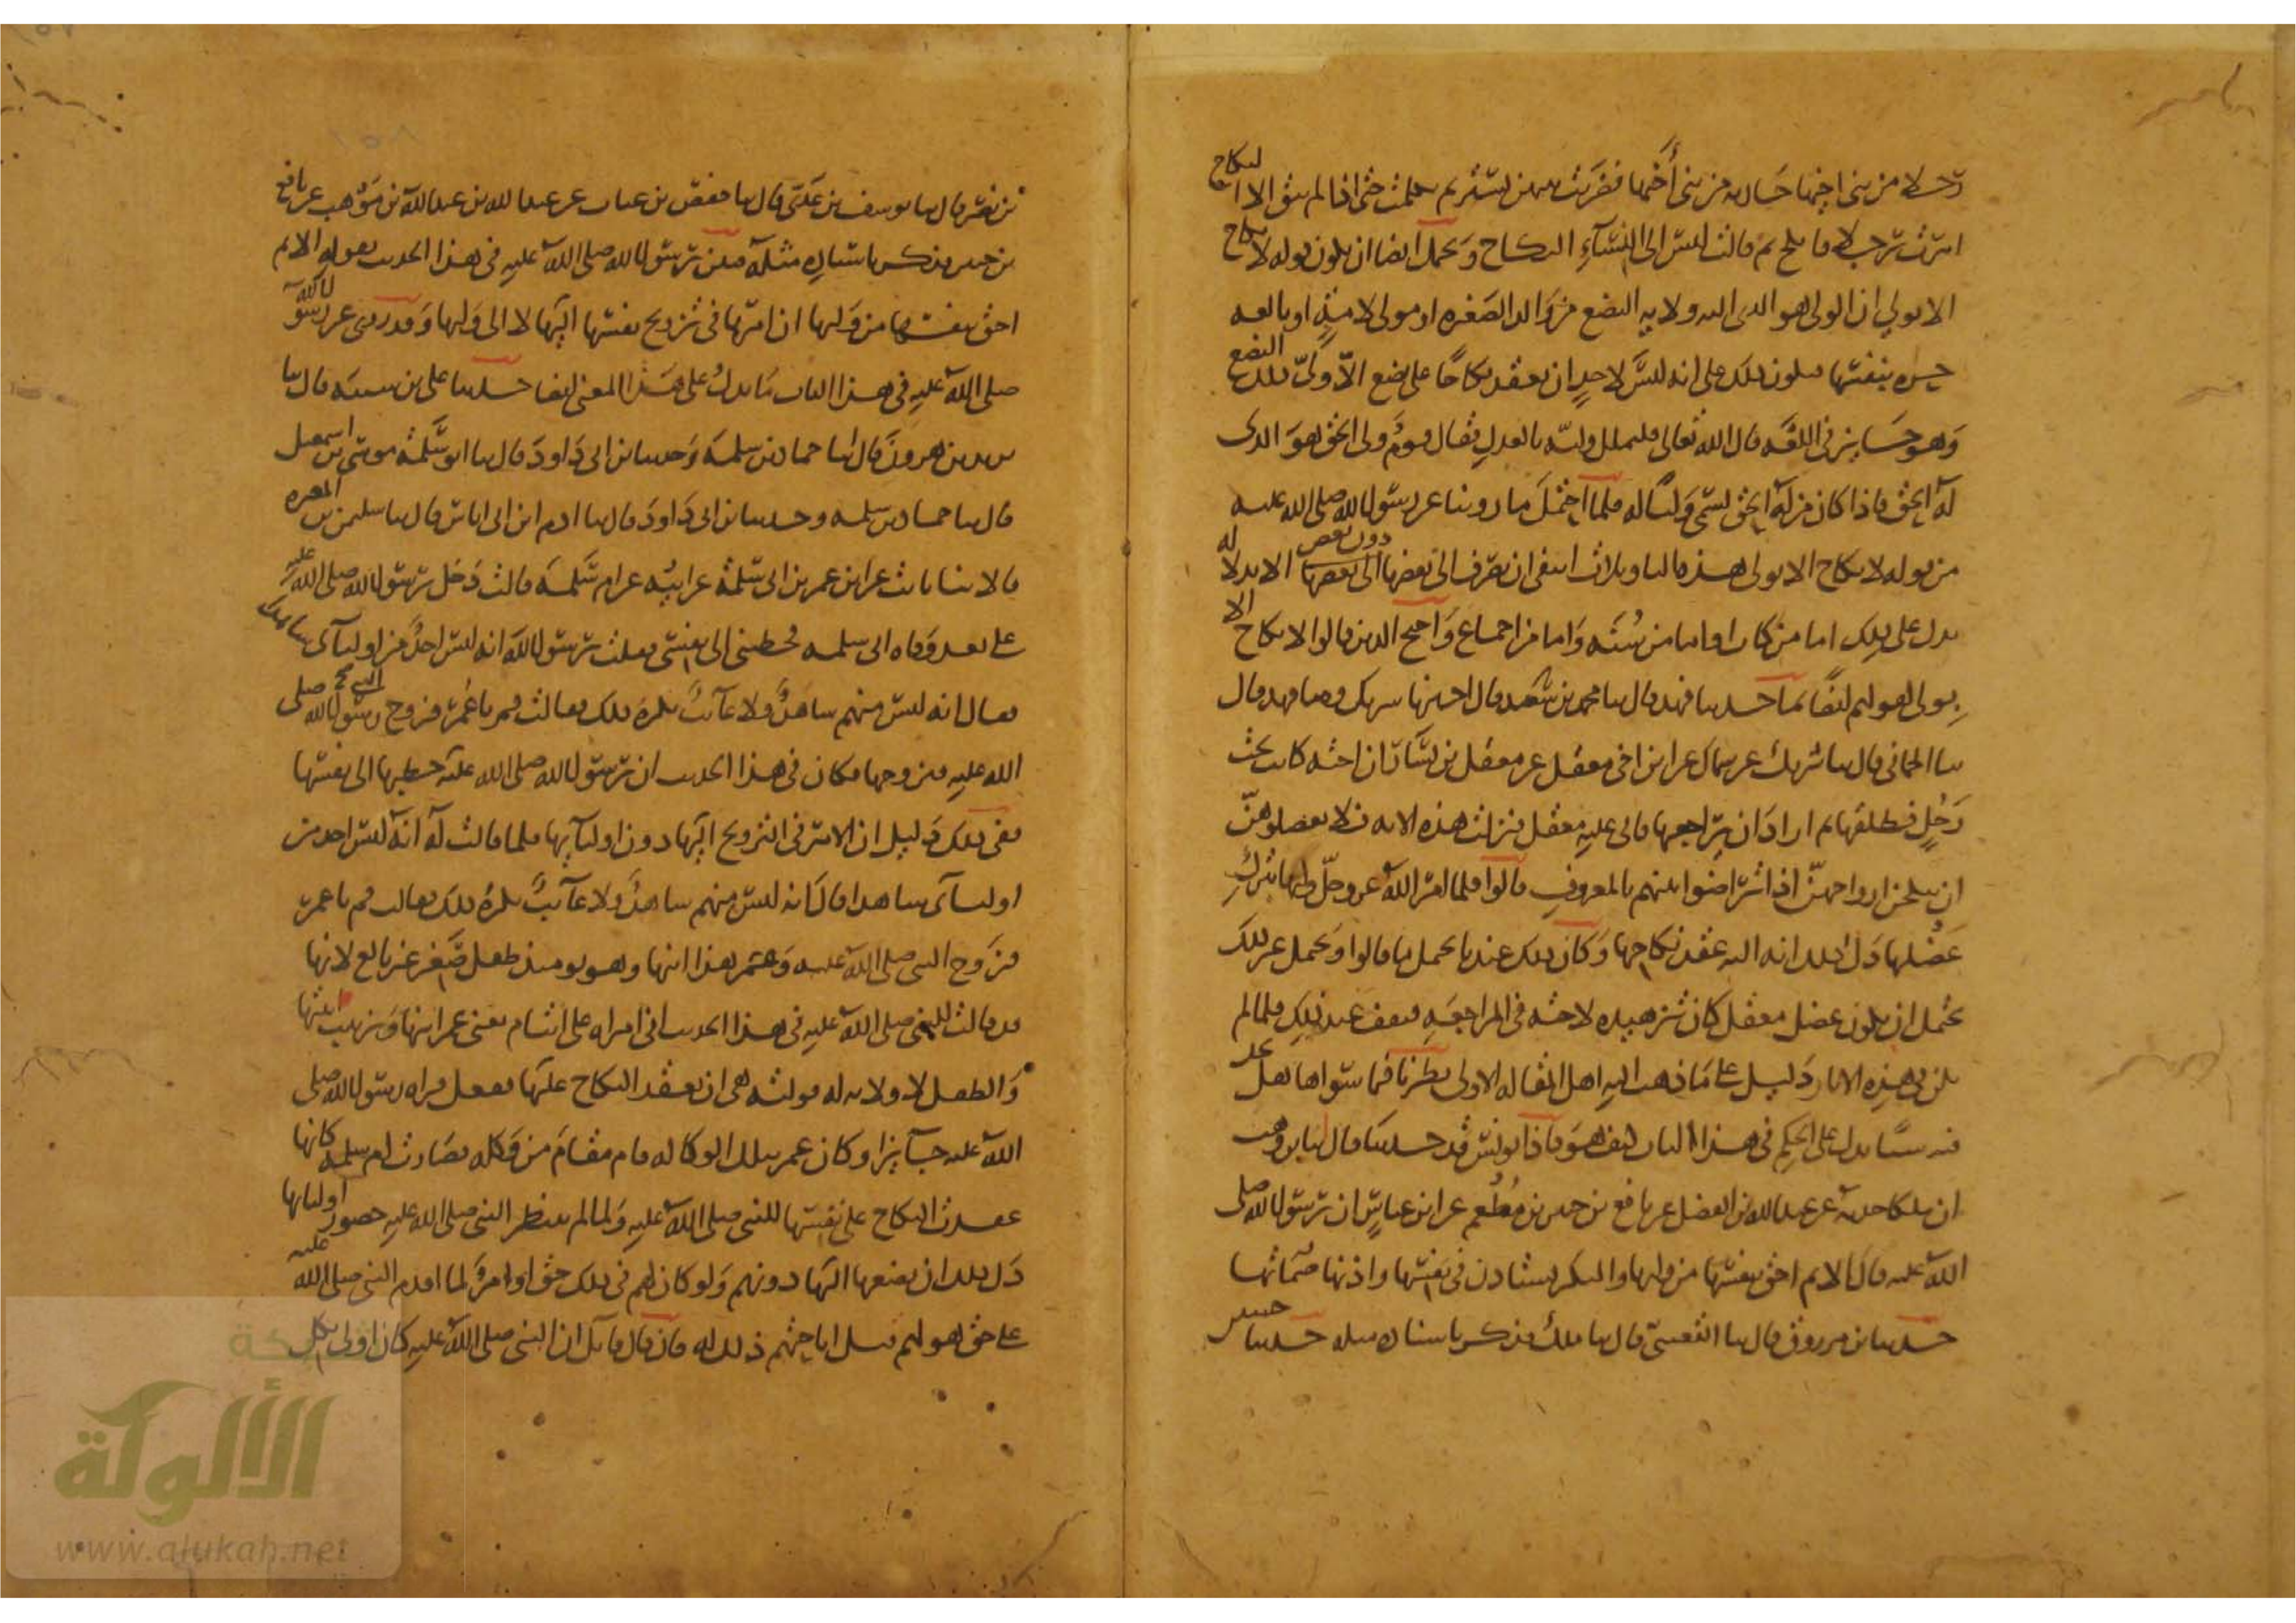 رجلا من بني اخيها جارية من بني أخيها فضربت بينهن بستر ثم تكلمت حتى اذا لم يبق الا النكاح
امرت رجلا فانكح ثم قالت ليس الى النساء النكاح ويحتمل ايضا ان يكون قوله لا نكاح
الا بولي ان الولي هو الذي اليه ولاية البضع من والد الصغيرة او مولى الامة او بالغة
حرة بنفسها فيكون ذلك على انه ليس لاحد ان يعقد نكاحا على بضع الا ولي ذلك البضع
وهو جائز في اللغة قال الله تعالى فليملل وليه بالعدل فقال قوم ولي الحق هو الذي
له الحق فاذا كان من له الحق يسمى وليا له فلما احتمل ما روينا عن رسول الله صلى الله عليه
من قوله لا نكاح الا بولي هذه التاويلات انتفى ان يصرف الى بعضها دون بعض الا بدلالة
تدل على ذلك اما من كتاب واما من سنة واما من اجماع واحتج الذين قالوا لا نكاح الا
بولي لقولهم ايضا بما حدثنا فهد قال ثنا محمد بن سعيد قال اخبرنا شريك وثنا فهد قال
ثنا الحماني قال ثنا شريك عن سماك عن ابن اخي معقل عن معقل بن يسار ان اخته كانت تحت
رجل فطلقها ثم اراد ان يراجعها فابى عليه معقل فنزلت هذه الاية فلا تعضلوهن
ان ينكحن ازواجهن اذا تراضوا بينهم بالمعروف قالوا فلما امر الله عز وجل وليها بترك
عضلها دل ذلك انه اليه عقد نكاحها وكان ذلك عندنا يحتمل ما قالوا ويحتمل غير ذلك
يحتمل ان يكون عضل معقل كان تزهيده لاخته في المراجعة فتقف عند ذلك فلما لم
يكن في هذه الاثار دليل على ما ذهب اليه اهل المقالة الاولى نظرنا فيما سواها هل نجد
فيه شيئا يدل على الحكم في هذا الباب كيف هو فاذا يونس قد حدثنا قال ثنا ابن وهب
ان مالكا حدثه عن عبد الله بن الفضل عن نافع بن جبير بن مطعم عن ابن عباس ان رسول الله صلى
الله عليه قال الايم احق بنفسها من وليها والبكر تستاذن في نفسها واذنها صماتها
حدثنا ابن مرزوق قال ثنا القعنبي قال ثنا ملك فذكر باسناده مثله حدثنا حسين
بن نصر قال ثنا يوسف بن عدي قال ثنا حفص بن غياث عن عبد الله بن عبد الله بن موهب عن نافع
بن جبير فذكر باسناده مثله فبين رسول الله صلى الله عليه في هذا الحديث بقوله الايم
احق بنفسها من وليها ان امرها في تزويج نفسها اليها لا الى وليها وقد روي عن رسول الله
صلى الله عليه في هذا الباب ما يدل على هذا المعنى ايضا حدثنا علي بن شيبة قال ثنا
يزيد بن هرون قال انا حماد بن سلمة وحدثنا ابن ابي داود قال ثنا ابو سلمة موسى بن اسمعيل
قال ثنا حماد بن سلمه وحدثنا ابن ابي داود قال ثنا ادم ابن ابي اياس قال ثنا سليمن بن المغيره
قالا ثنا ثابت عن ابن عمر بن ابي سلمة عن ابيه عن ام سلمة قالت دخل رسول الله صلى الله عليه
علي بعد وفاة ابي سلمه فخطبني الى نفسي فقلت رسول الله انه ليس احد من اوليآئي شاهدا
فقال انه ليس منهم شاهد ولا غآئب يكره ذلك فقالت قم يا عمر فزوج رسول الله صلى
الله عليه فتزوجها فكان في هذا الحديث ان رسول الله صلى الله عليه خطبها الى نفسها
ففي ذلك دليل ان الامر في التزويج اليها دون اوليآئها فلما قالت له انه ليس احد من
اوليآئي شاهدا قال انه ليس منهم شاهد ولا غآئب يكره ذلك فقالت قم يا عمر
فزوج النبي صلى الله عليه وعمر هذا ابنها وهو يومئذ طفل صغير غير بالغ لانها
قد قالت للنبي صلى الله عليه في هذا الحديث اني امراة على ايتام يعني عمر ابنها وزينب ابنتها
والطفل لا ولاية له فولته هي ان يعقد النكاح عليها ففعل فراه رسول الله صلى
الله عليه جآئزا وكان عمر بتلك الوكالة قام مقام من وكله فصارت ام سلمه كانها
عقدت النكاح على نفسها للنبي صلى الله عليه ولما لم ينتظر النبي صلى الله عليه حضور اوليائها
دل ذلك ان بضعها اليها دونهم ولو كان لهم في ذلك حق او امر لما اقدم النبي صلى الله عليه
على حق هو لهم قبل اباحتهم ذلك له فان قال قآئل ان النبي صلى الله عليه كان اولى بكل
شبكة
الألوكة
www.alukah.net